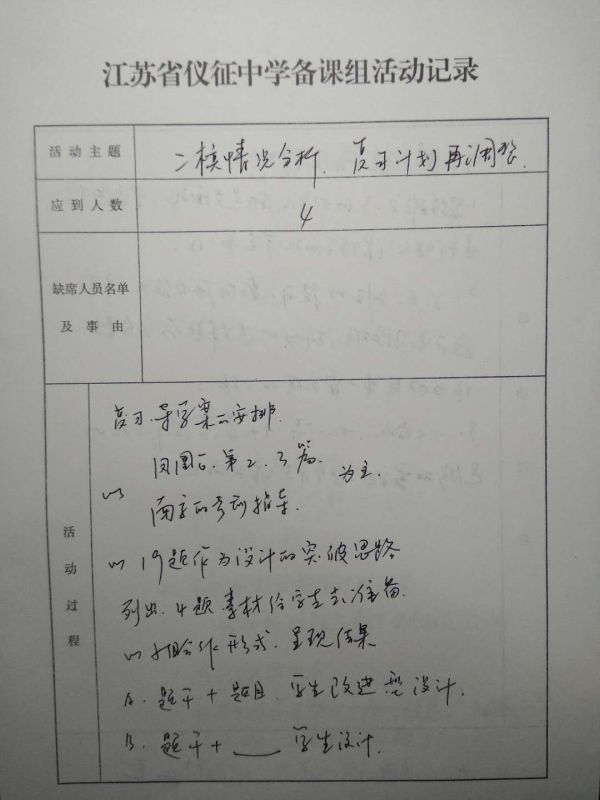 江苏省仪征中学备课组活动记录
活动主题 二模情况分析、复习计划再调整.
应到人数 4
缺席人员名单
及事由
活动过程
复习导学案的安排.
第2、3篇.
以 为主.
南京的考前指导.
以19题作为设计的突破思路
列出4题素材给学生去准备.
以小组合作形式.呈现结果
A. 题干+题目.学生改进型设计.
B. 题干+____学生设计.